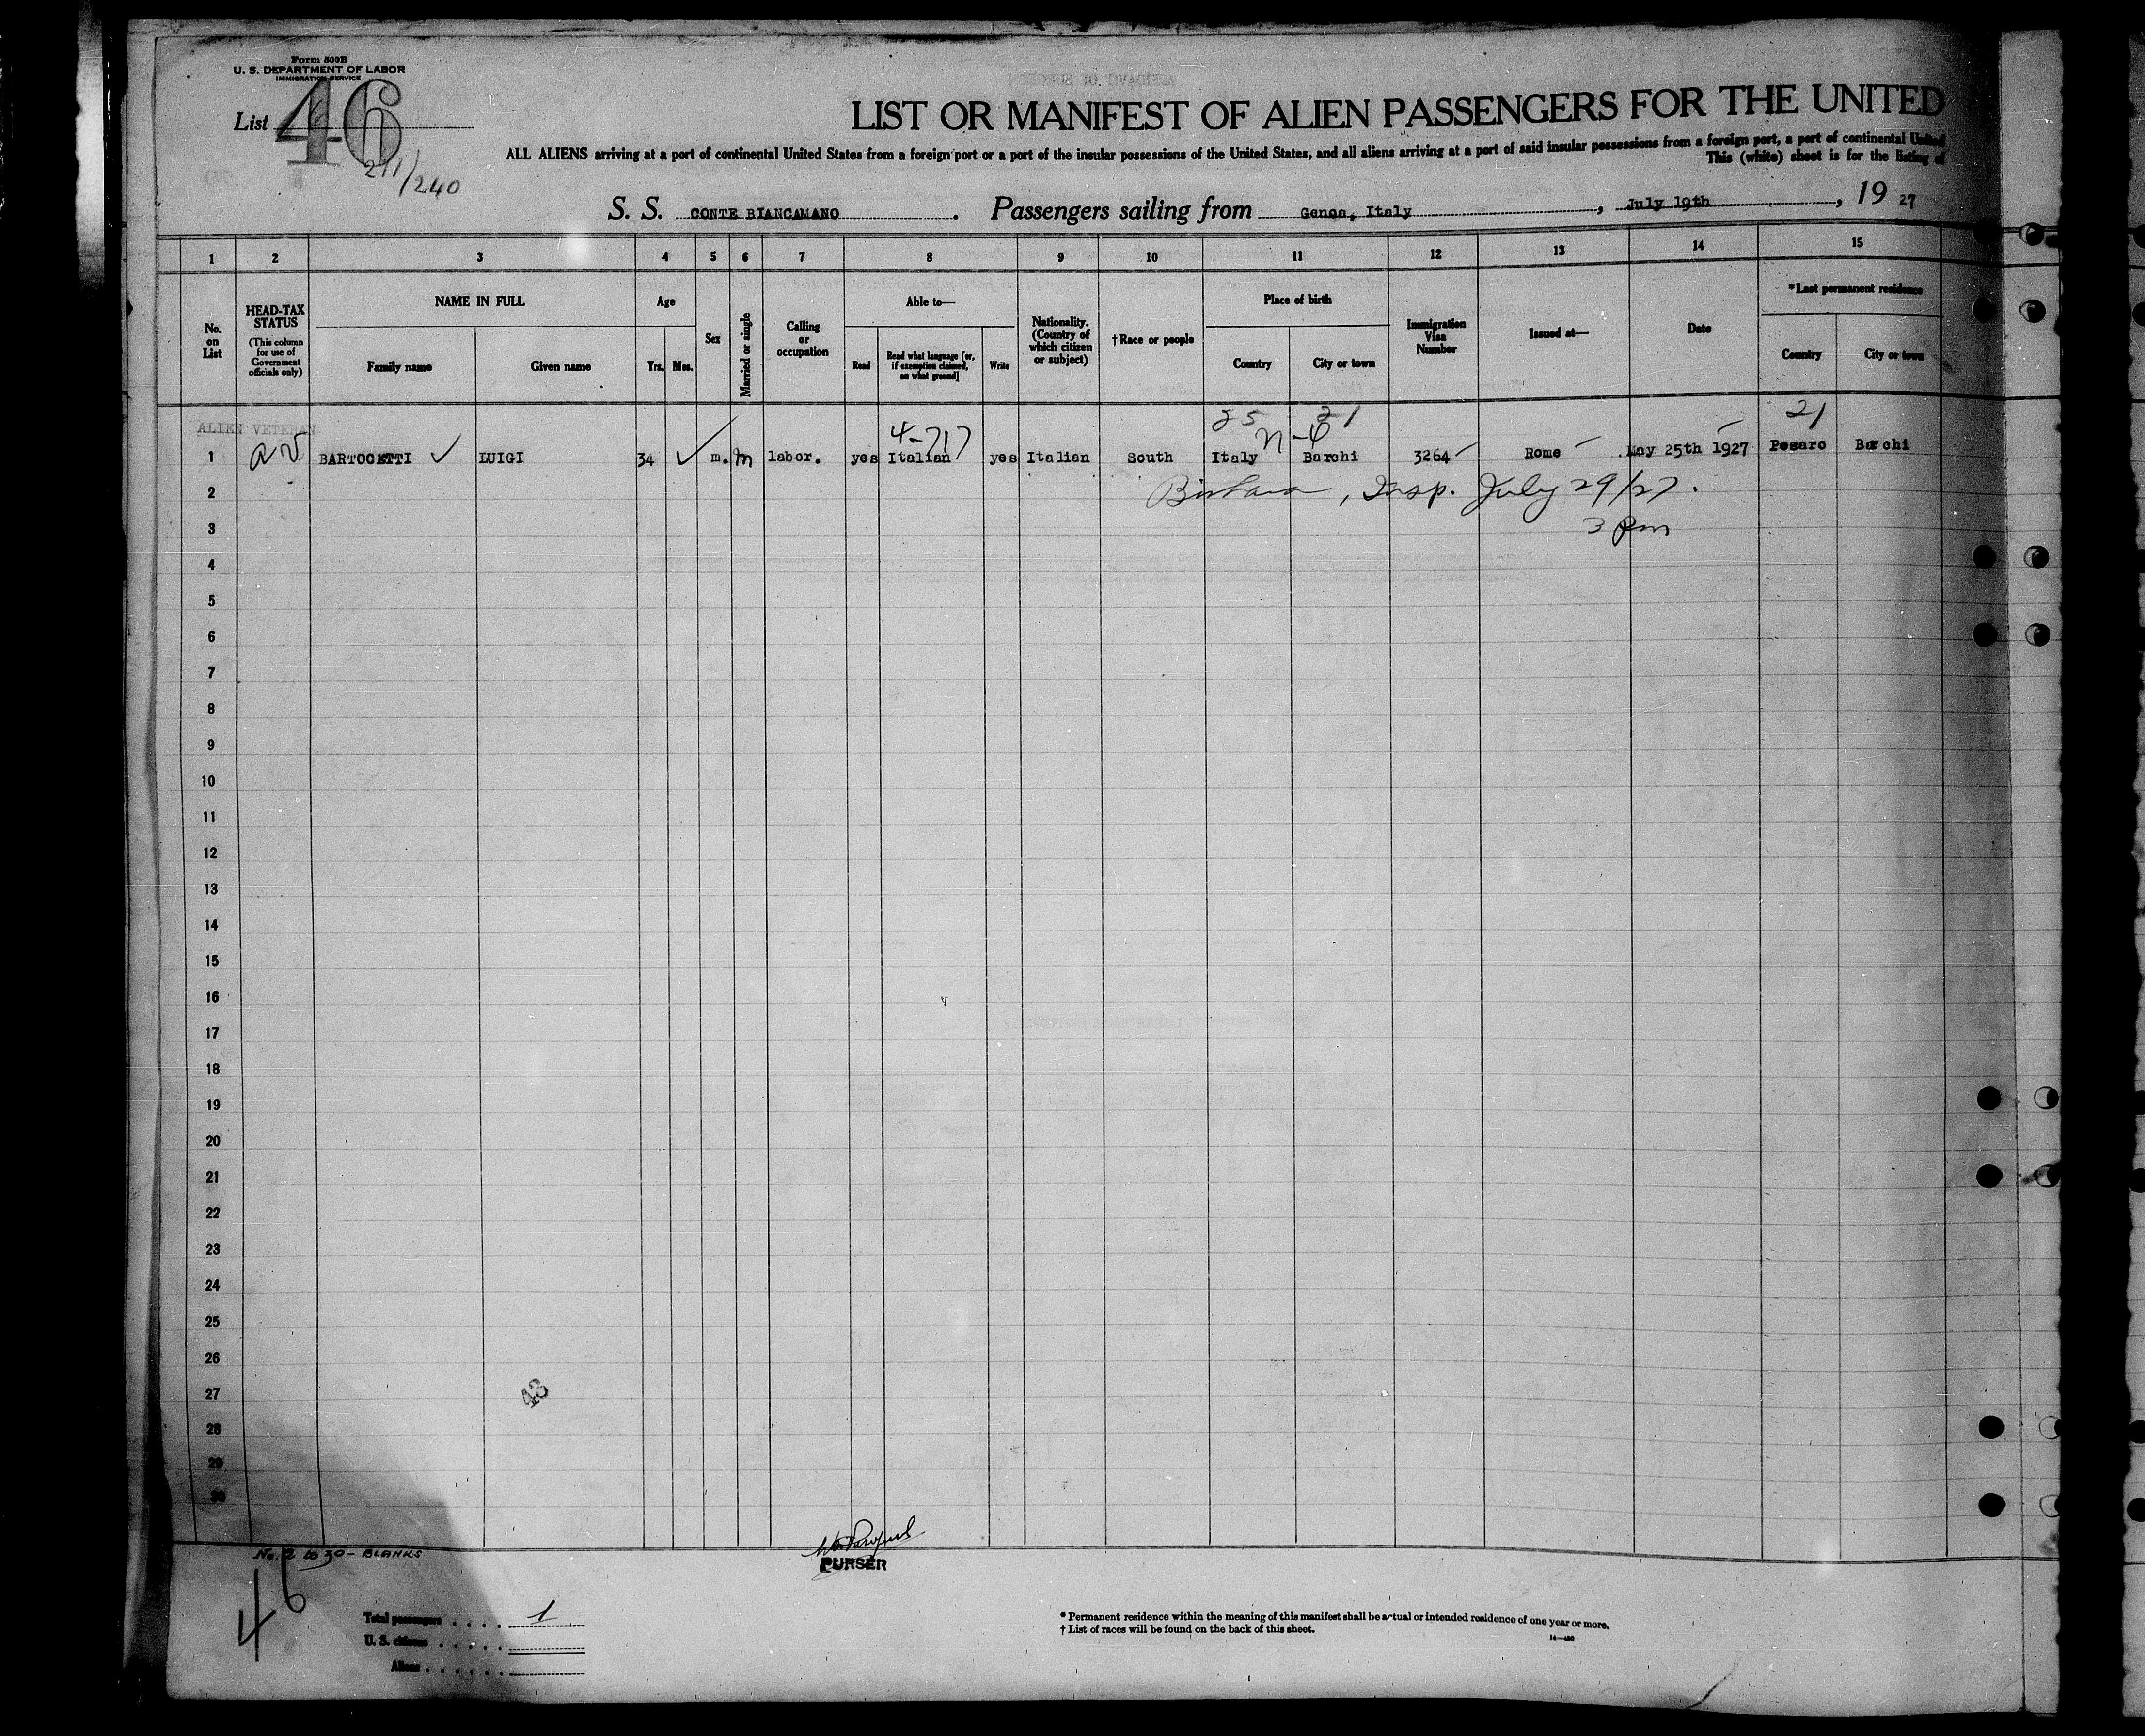 Form 500B
U. S. DEPARTMENT OF LABOR
IMMIGRATION SERVICE
List 46
211/240
LIST OR MANIFEST OF ALIEN PASSENGERS FOR THE UNITED
ALL ALIENS arriving at a port of continental United States from a foreign port or a port of the insular possessions of the United States, and all aliens arriving at a port of said insular possessions from a foreign port, a port of continental United
This (white) sheet is for the listing of
S. S. CONTE BIANCAMANO . Passengers sailing from Genoa, Italy , July 19th , 19 27
1 2 3 4 5 6 7 8 9 10 11 12 13 14 15
No. on List
HEAD-TAX STATUS (This column for use of Government officials only)
NAME IN FULL
Family name Given name
Age
Yrs. Mos.
Sex
Married or single
Calling or occupation
Able to—
Read
Read what language [or, if exemption claimed, on what ground]
Write
Nationality. (Country of which citizen or subject)
†Race or people
Place of birth
Country City or town
Immigration Visa Number
Issued at—
Date
*Last permanent residence
Country City or town
ALIEN VETERAN
4-717
25 21
21
1 av BARTOCETTI ✓ LUIGI 34 ✓ m. m labor. yes Italian yes Italian South Italy Barchi 3264 Rome May 25th 1927 Pesaro Barchi
2 Insp. July 29/27.
3 3 pm
4
5
6
7
8
9
10
11
12
13
14
15
16
17
18
19
20
21
22
23
24
25
26
27
43
28
29
30
No. 2 to 30 - BLANKS
PURSER
46
Total passengers . . . . 1
U. S. citizens . . . . .
Aliens . . . . . .
* Permanent residence within the meaning of this manifest shall be actual or intended residence of one year or more.
† List of races will be found on the back of this sheet.